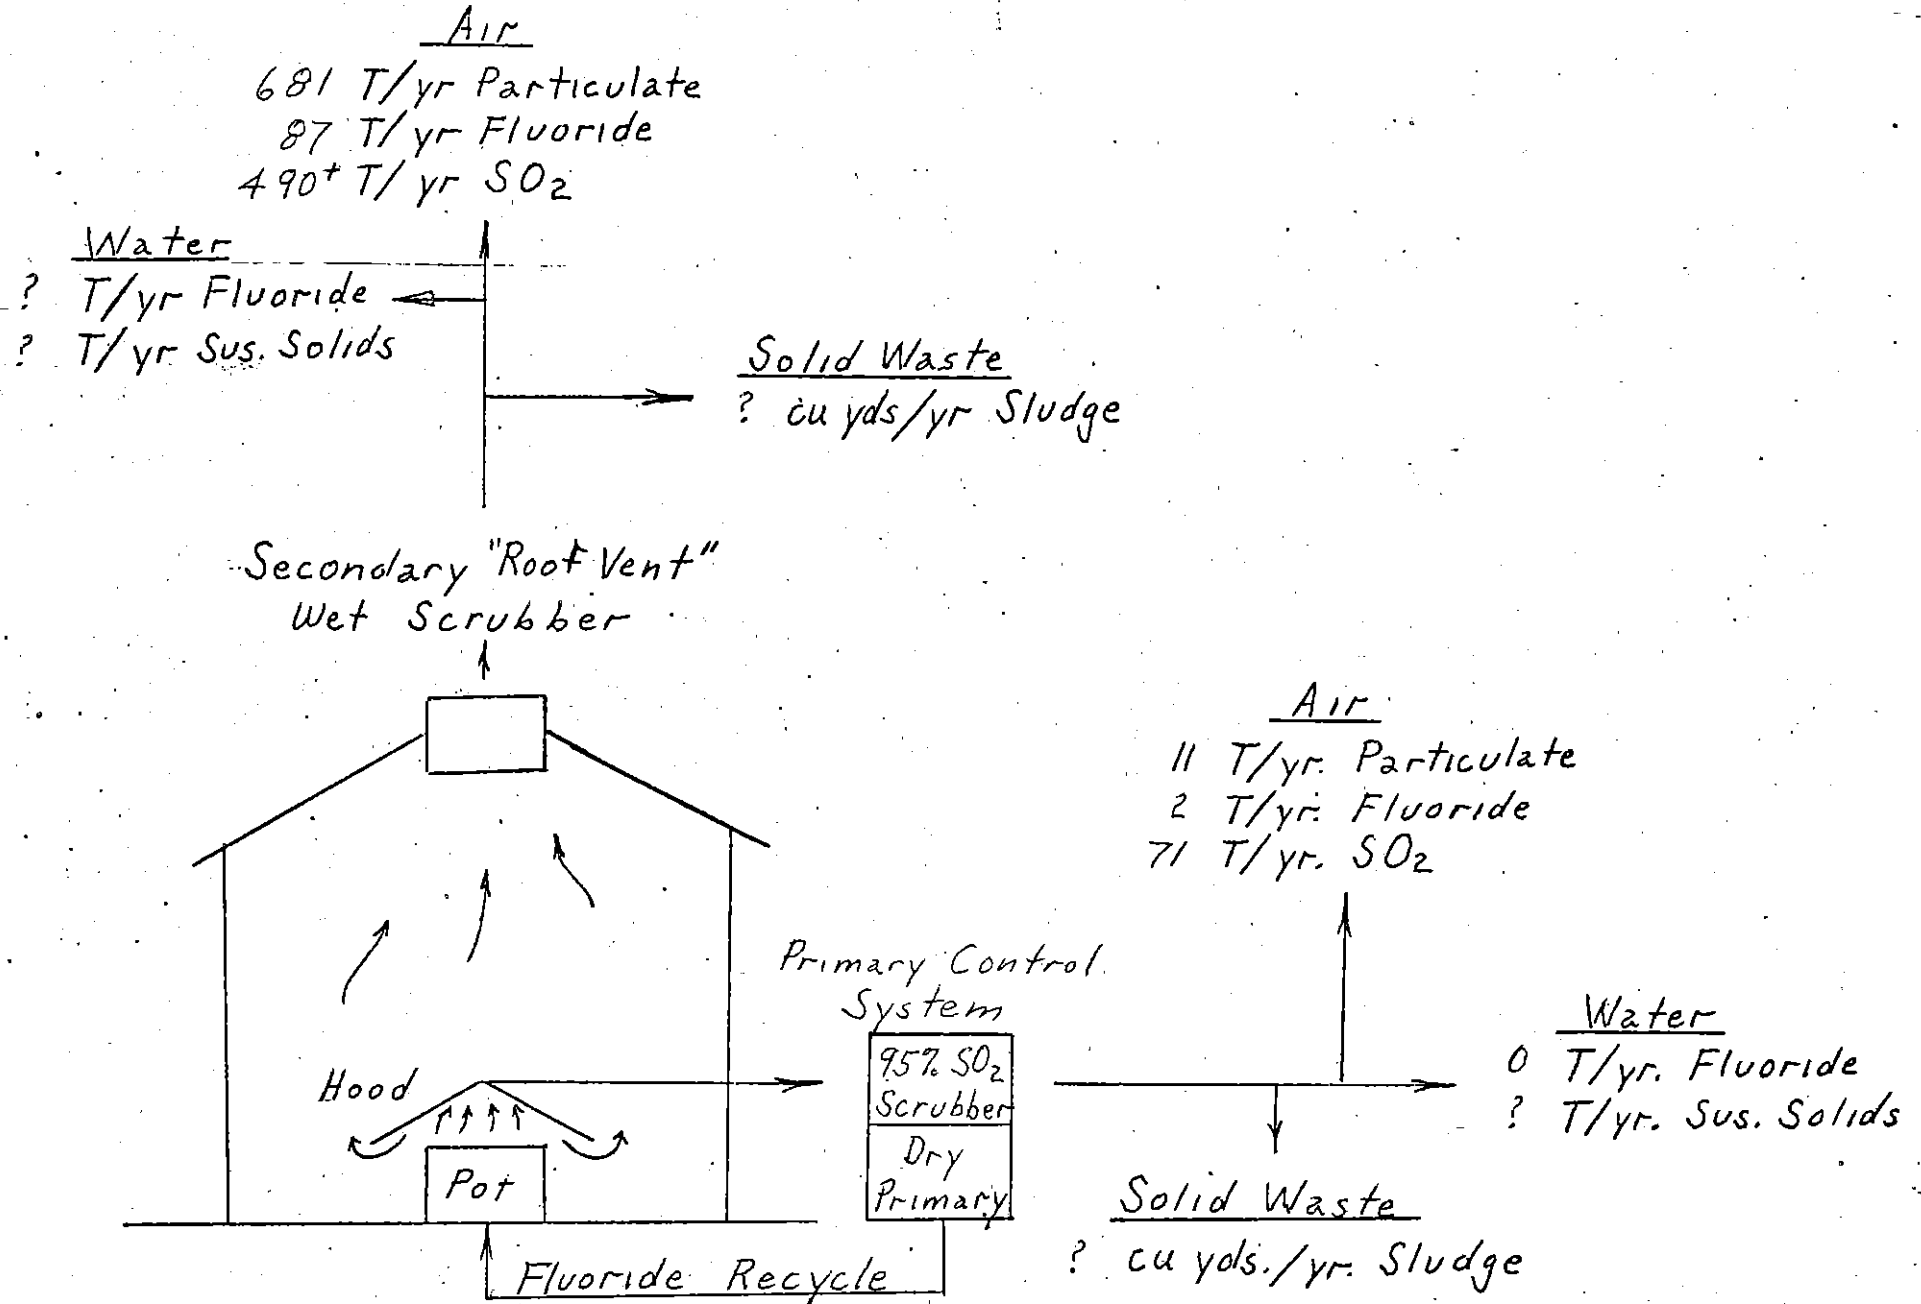 Air
681 T/yr Particulate
87 T/yr Fluoride
490+ T/yr SO2
Water
? T/yr Fluoride
? T/yr Sus. Solids
Solid Waste
? cu yds/yr Sludge
Secondary "Roof Vent"
Wet Scrubber
Air
11 T/yr. Particulate
2 T/yr. Fluoride
71 T/yr. SO2
Primary Control
System
95% SO2
Scrubber
Dry
Primary
Hood
Pot
Water
0 T/yr. Fluoride
? T/yr. Sus. Solids
Solid Waste
? cu yds./yr. Sludge
Fluoride Recycle